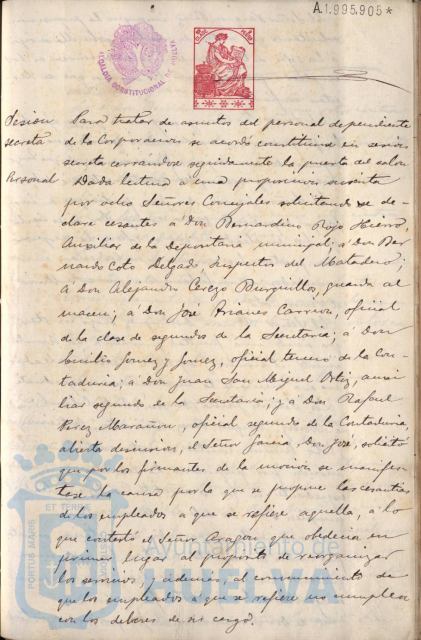 A.1.995.905*
ALCALDIA CONSTITUCIONAL DE
Sesion
secreta
Personal
Para tratar de asuntos del personal dependiente
de la Corporacion se acordó constituirse en sesion
secreta cerrandose seguidamente la puerta del salon.
Dada lectura a una proposicion suscrita
por ocho Señores Concejales solicitando se de-
clare cesantes á Don Bernardino Rojo Hierro,
Auxiliar de la Depositaria municipal; á Don Ber-
nardo Coto Delgado, Inspector del Matadero;
á Don Alejandro Cerezo Burguillos, guarda al-
macen; á Don José Arianes Carrion, oficial
de la clase de segundos de la Secretaria; á Don
Emilio Gomez y Gomez, oficial tercero de la Con-
taduria; á Don Juan San Miguel Ortiz, auxi-
liar segundo de la Secretaria; y á Don Rafael
Perez Marañon, oficial segundo de la Contaduria,
abierta discusion, el Señor Garcia Don José, solicitó
que por los firmantes de la mocion se manifes-
tase la causa por la que se propone las cesantias
de los empleados á que se refiere aquella, á lo
que contestó el Señor Aragon que obedecia en
primer lugar al proposito de reorganizar
los servicios, y ademas, al convencimiento de
que los empleados á que se refiere no cumplen
con los deberes de su cargo.
PORTUS MARIS
ET TERRE
Ayuntamiento de
HUELVA